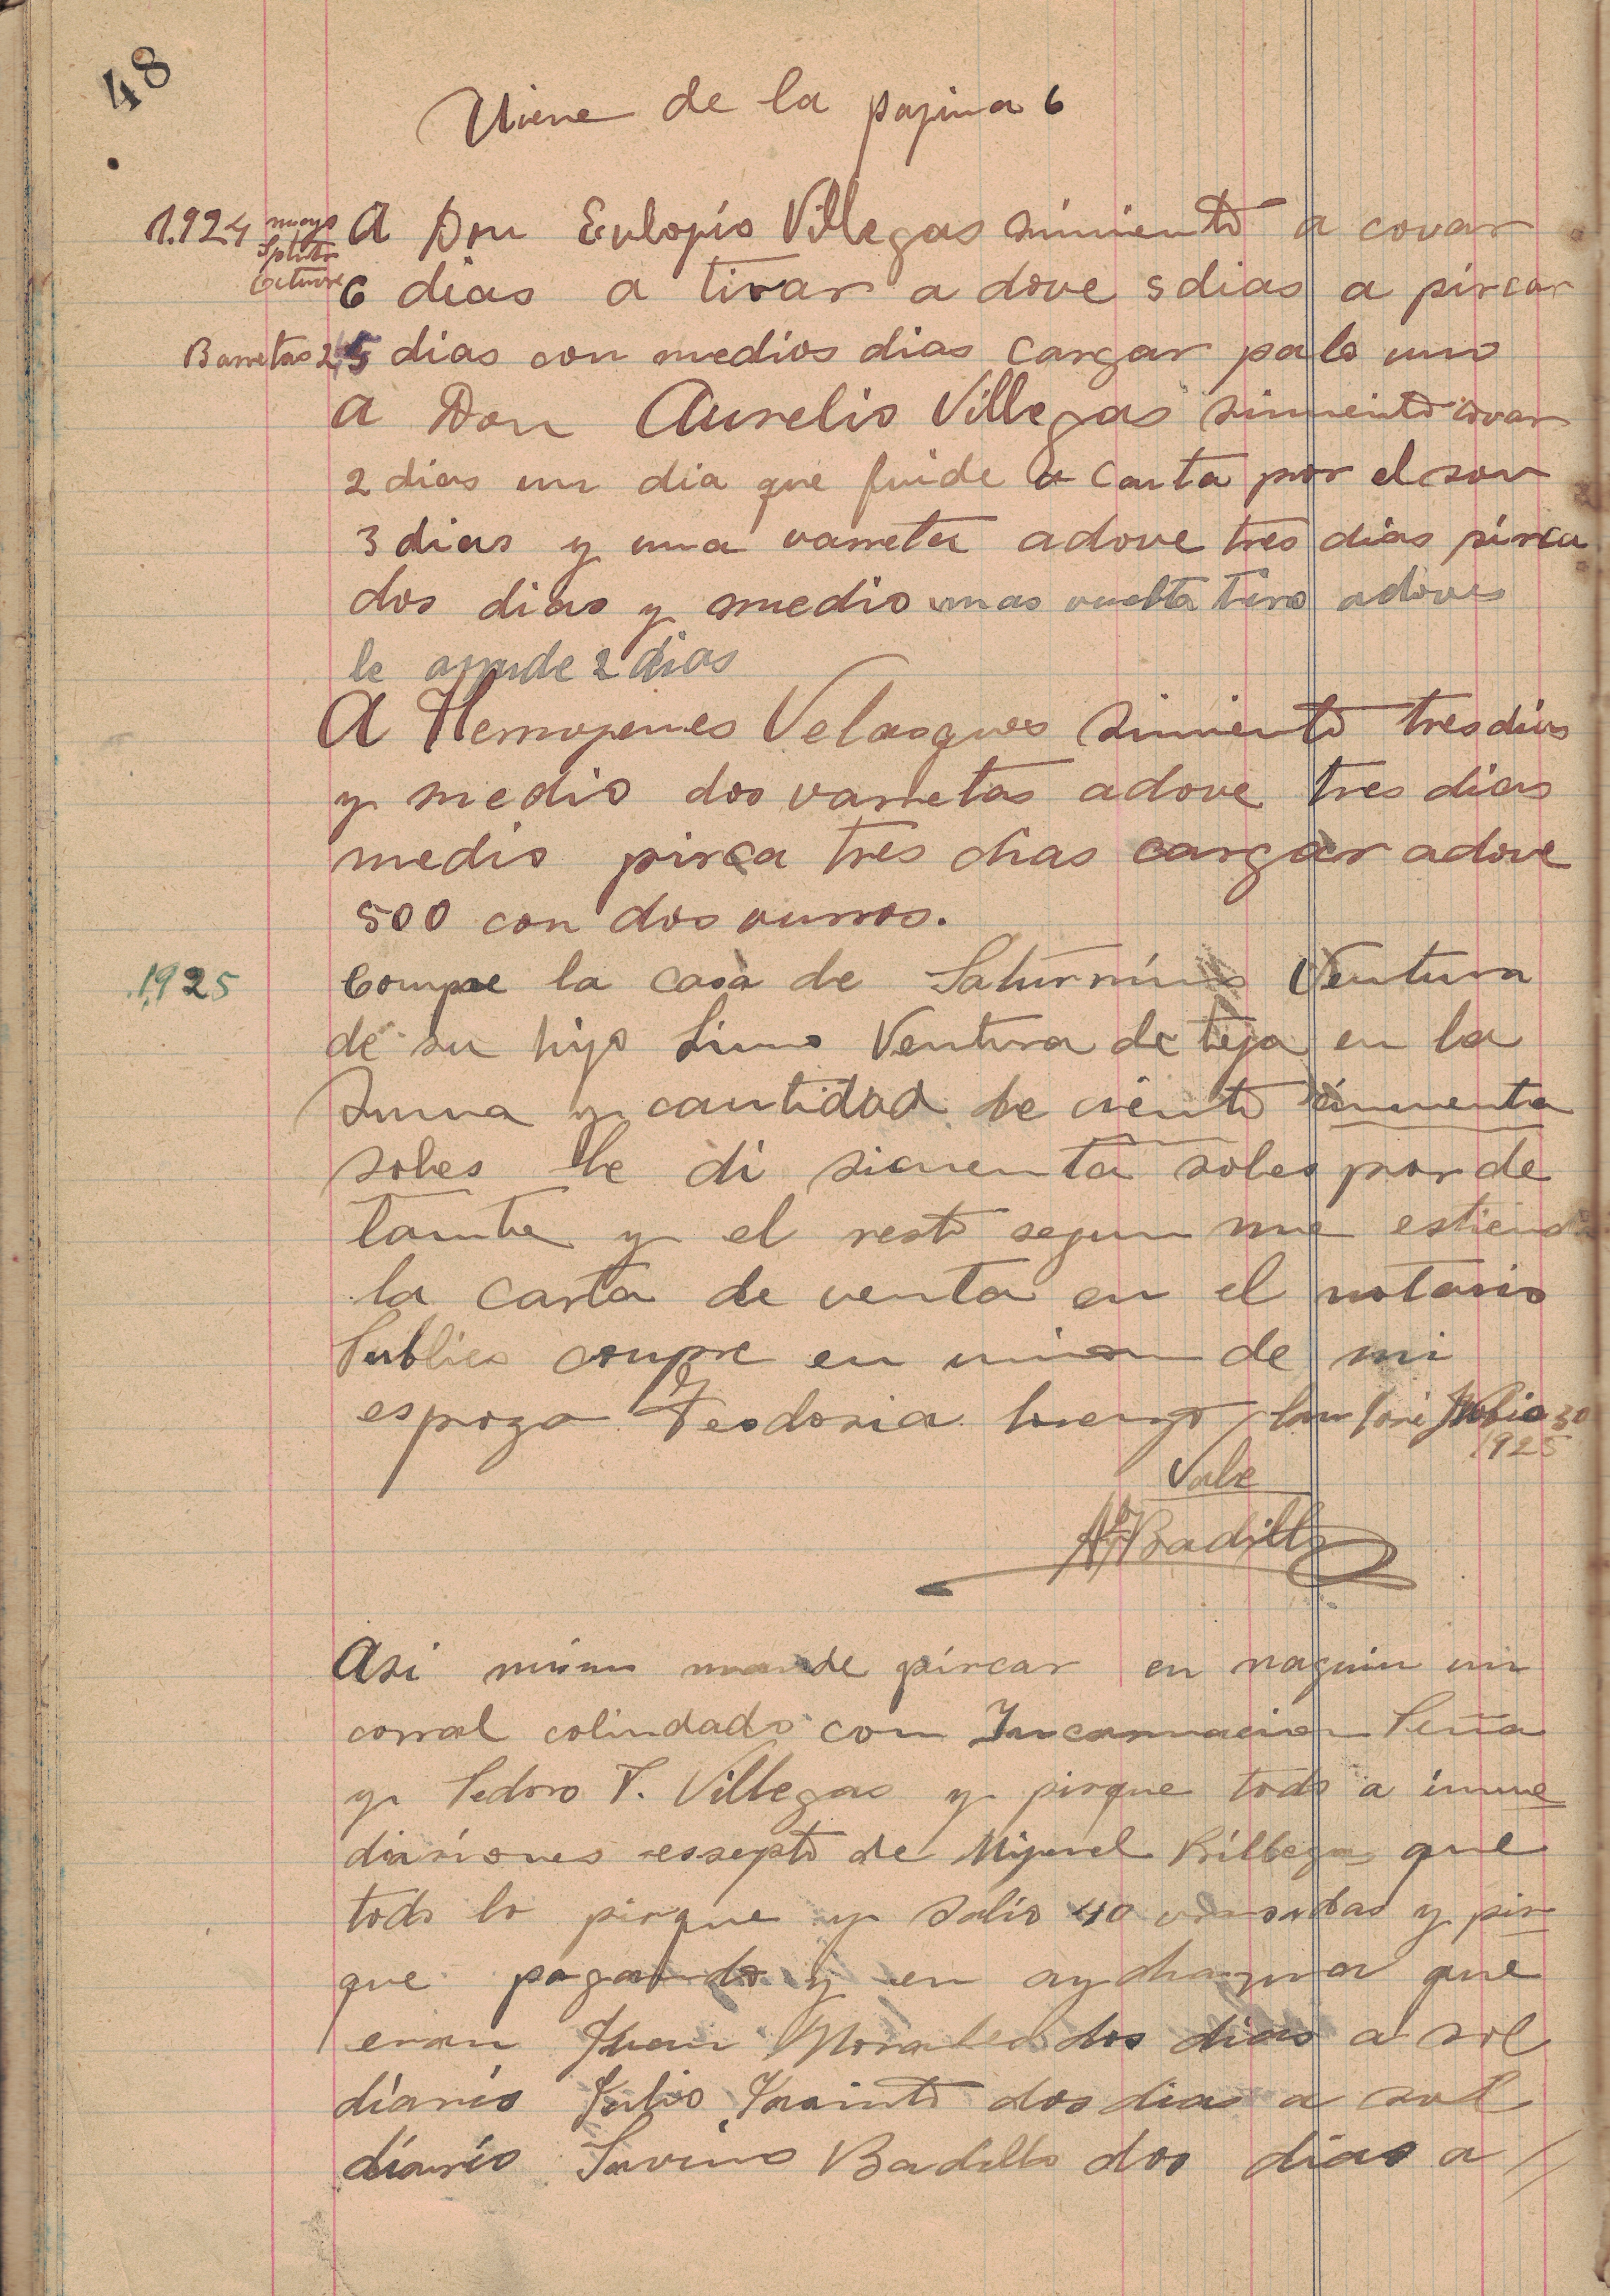 48
Viene de la pagina 6
1.924 mayo A Don Eulogio Villegas simiento a covar
Octubre 6 dias a tirar adove 5 dias a pircar
Barretas 2 5 dias con medios dias cargar palo uno
A Don Aurelio Villegas simiento covar
2 dias un dia que fuide a Canta por el son
3 dias y una varreta adove tres dias pirca
dos dias y medio mas vuelta tiro adoves
le ayude 2 dias
A Hermogenes Velasques Simiento tres dias
y medio dos varretas adove tres dias
medio pirca tres dias cargar adove
500 con dos vurros.
1925 Compre la casa de Saturnino Ventura
de su hijo Lino Ventura de teja en la
Suma y cantidad de ciento cincuenta
soles le di sicuenta soles por de
lante y el resto segun me estiend
la carta de venta en el notario
Publico compre en union de mi
espoza Teodosia Lorenzo San José Julio 30
1925
Vale
A Badillo
Asi mismo mande pircar en naquin un
corral colindado con Incarnacion Peña
y Pedro P. Villegas y pirque todo a inme
diasiones essepto de Miguel Billegas que
todo lo pirque y salio 40 varsadas y pir
que pagando y en aydhaqua que
eran Juan Morales dos dias a sol
diario Julio Jasinto dos dias a sol
diario Savino Badillo dos dias a //